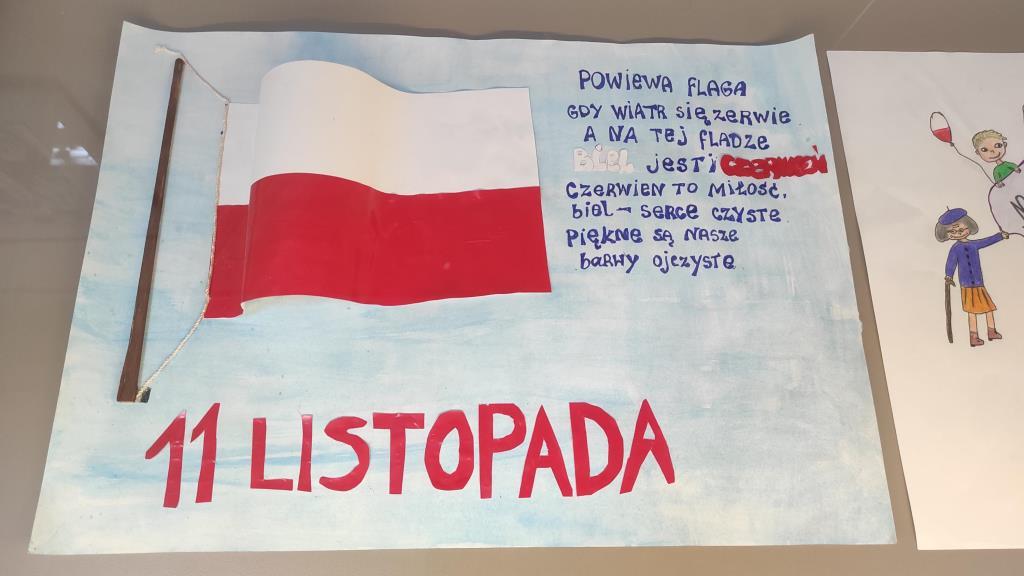 POWiEWA fLAGA
GDY WiATR SiĘ ZERWiE
A NA TEJ fLADZE
BiEL JEST i CZERWIEŃ
CZERWiEN TO MiŁOŚĆ,
biEL – SERCE CZYSTE
PiĘKNE SĄ NASZE
bARWY OJCZYSTE
11 LISTOPADA